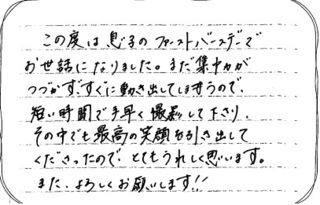 この度は息子のファーストバースデーで
お世話になりました。まだ集中力が
つづかず、すぐに動き出してしまうので、
短い時間で手早く撮影して下さり、
その中でも最高の笑顔を引き出して
くださったので、とてもうれしく思います。
また、よろしくお願いします!!